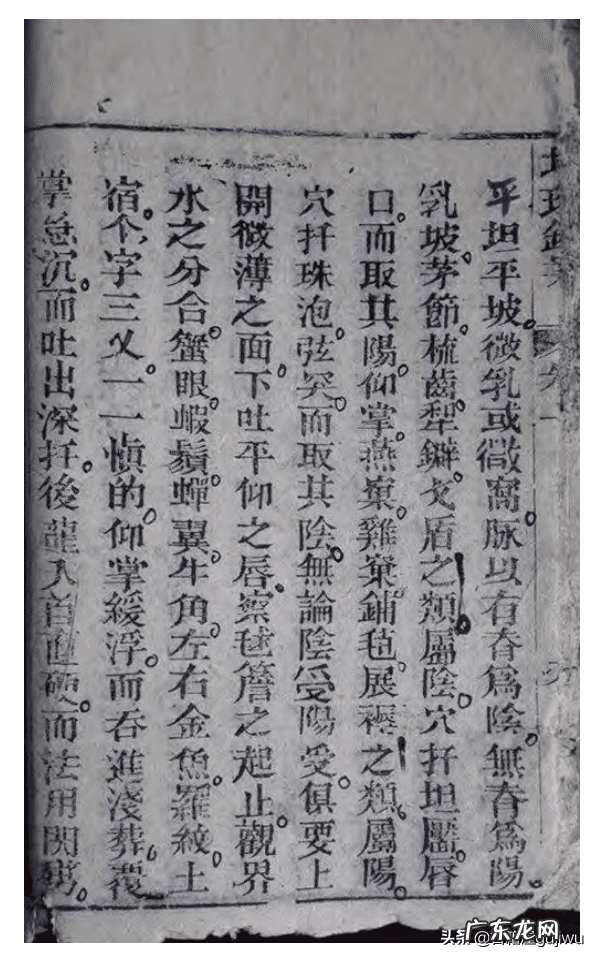 平坦平坡。微乳或微窩。脉以有脊爲陰。無脊爲陽
乳坡。茅節。梳齒犁鐴。戈盾之類屬陰。穴扦坦靨唇
口。而取其陽。仰掌。燕窠。雞窠鋪毡。展褥之類屬陽。
穴扦珠泡。弦突。而取其陰。無論陰受陽受。俱要上
開微薄之面。下吐平仰之唇。察毬簷之起止。觀界
水之分合。蟹眼蝦鬚。蟬翼。牛角。左右金魚。羅紋土
宿。个字三乂。一一慎的。仰掌緩浮。而吞進淺葬。覆
掌急沉。而吐出深扦。後龍入首直硬。而法用開窩。
广东龙网
头条
gujwu